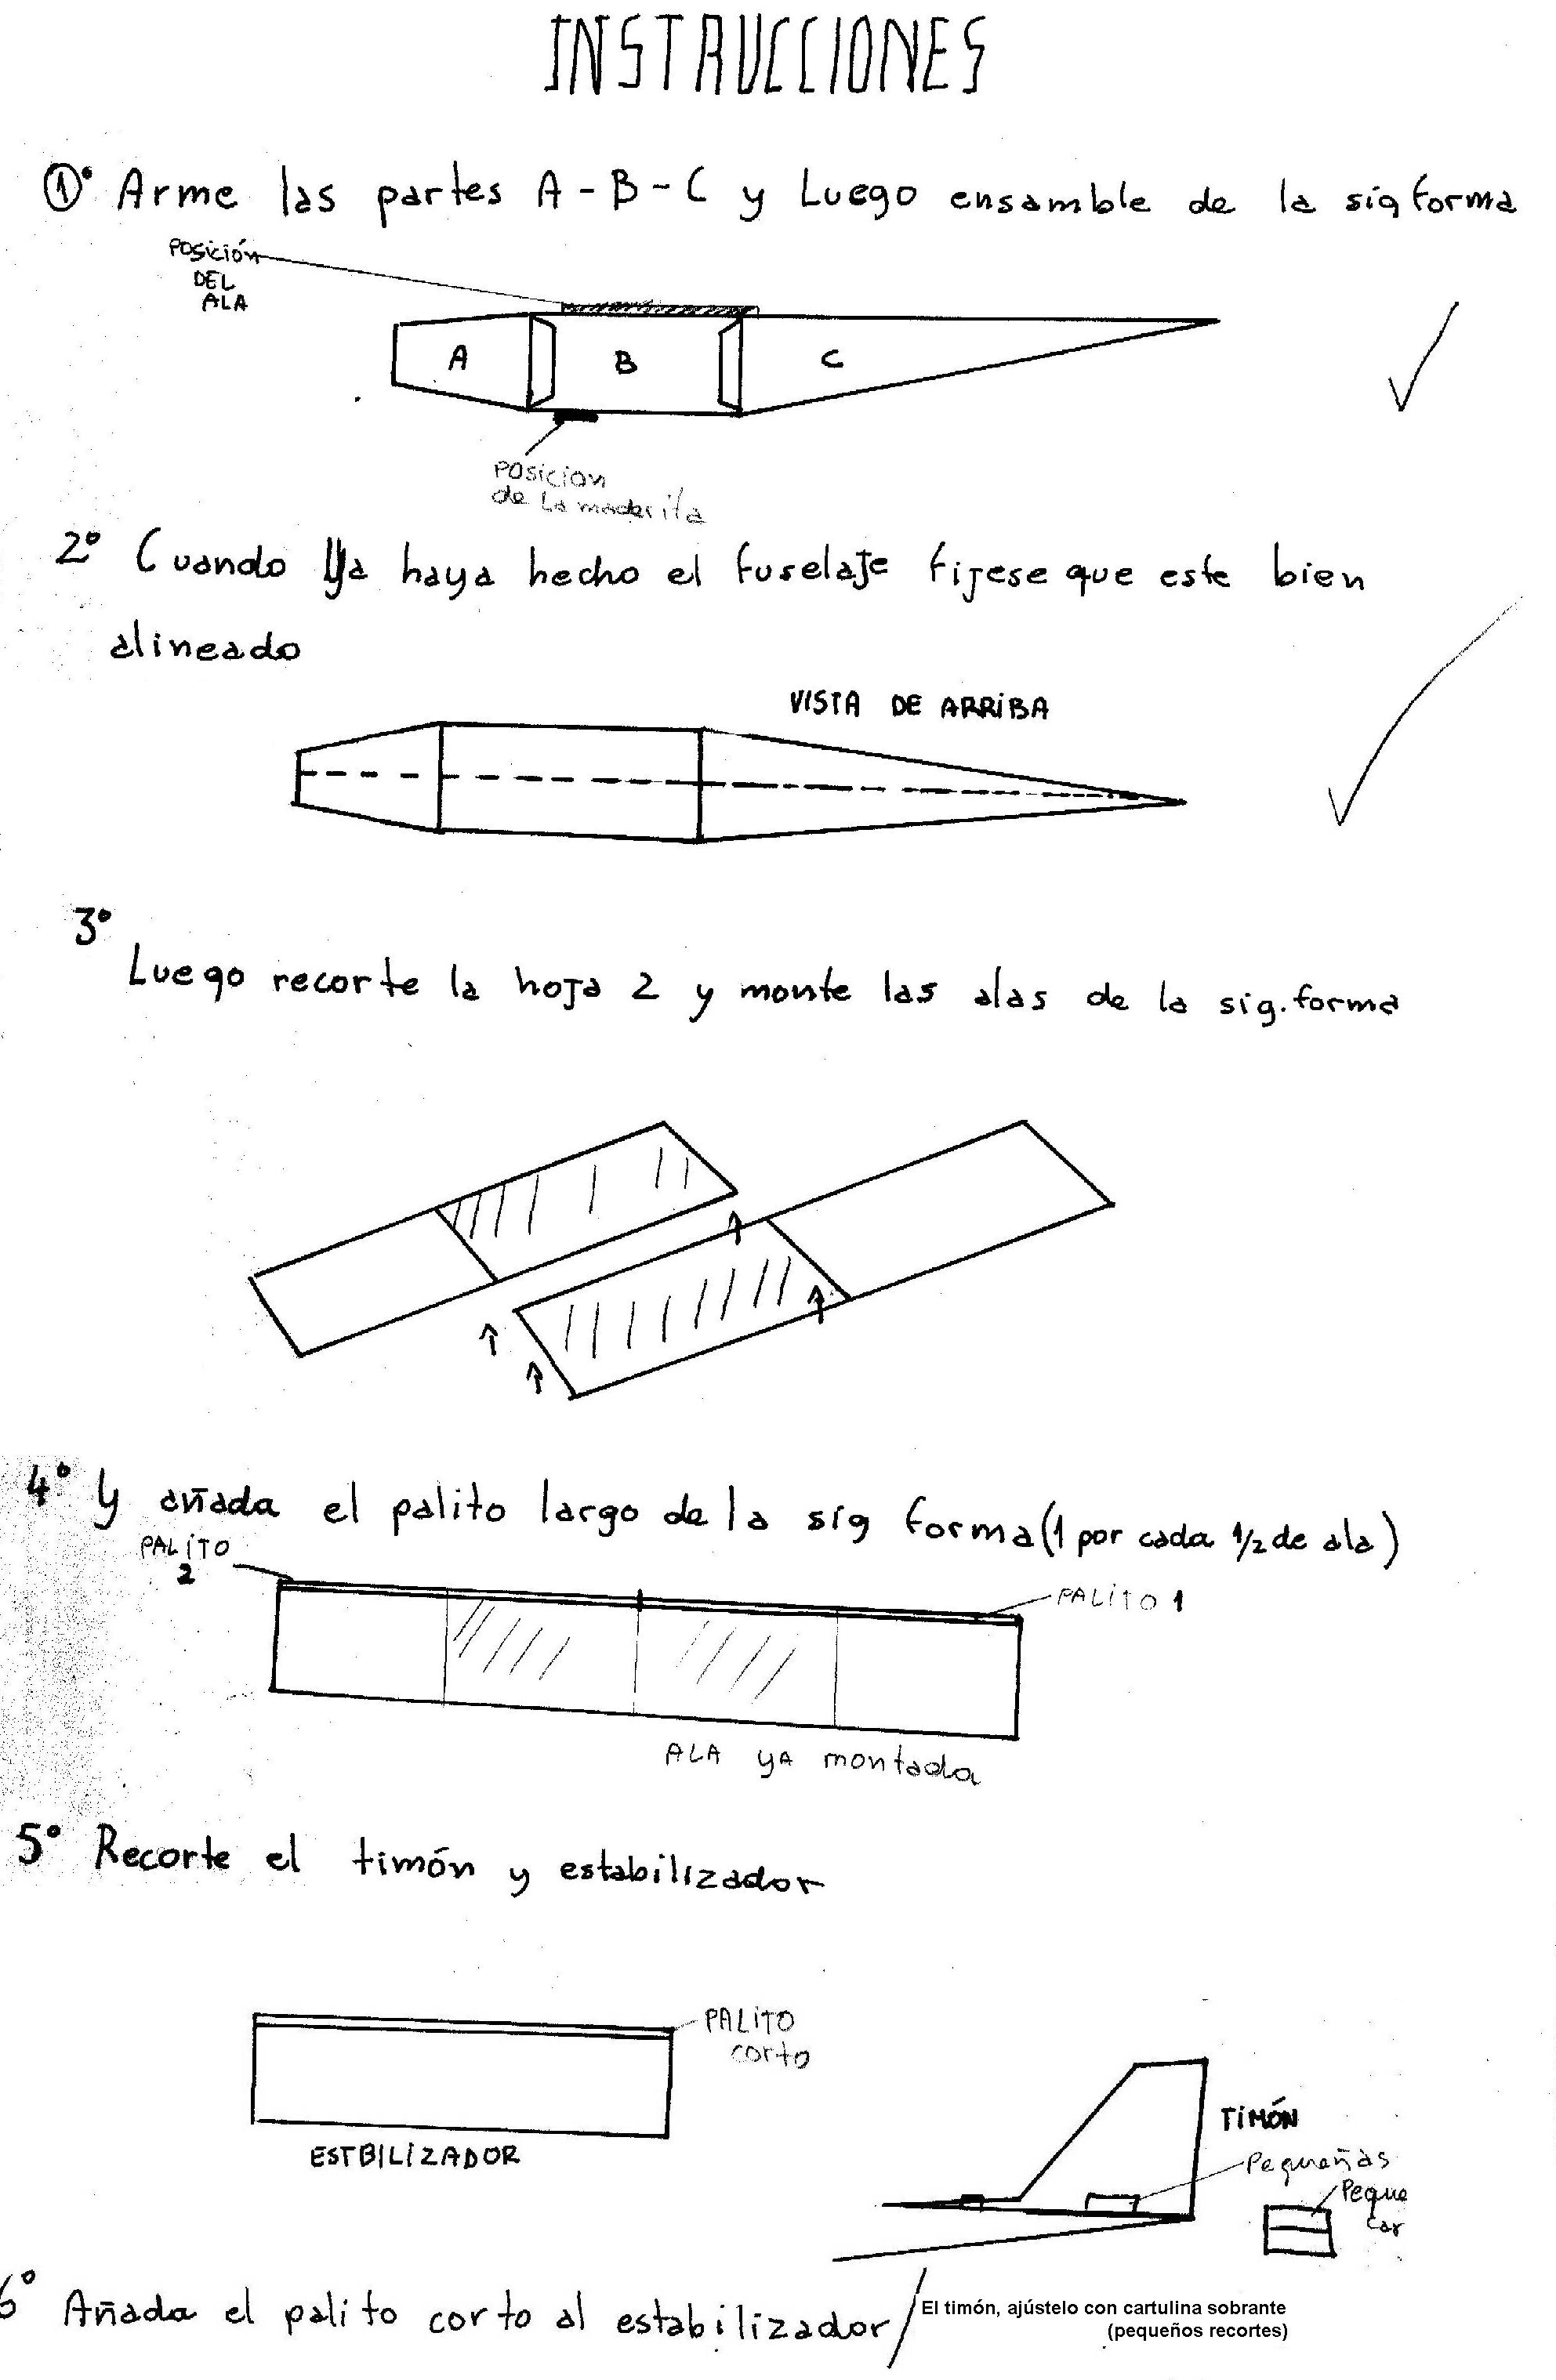 INSTRUCCIONES
1° Arme las partes A-B-C y Luego ensamble de la sig forma
POSICIÓN
DEL
ALA
A
B
C
POSICION
de La maderita
2° Cuando Ya haya hecho el fuselaje fijese que este bien
alineado
VISTA DE ARRIBA
3°
Luego recorte la hoja 2 y monte las alas de la sig. forma
4° y añada el palito largo de la sig forma (1 por cada 1/2 de ala)
PALITO
2
PALITO 1
ALA YA montada
5° Recorte el timón y estabilizador
PALITO
corto
ESTBILIZADOR
TIMÓN
Pequeñas
Peque
Car
6° Añada el palito corto al estabilizador/
El timón, ajústelo con cartulina sobrante
(pequeños recortes)